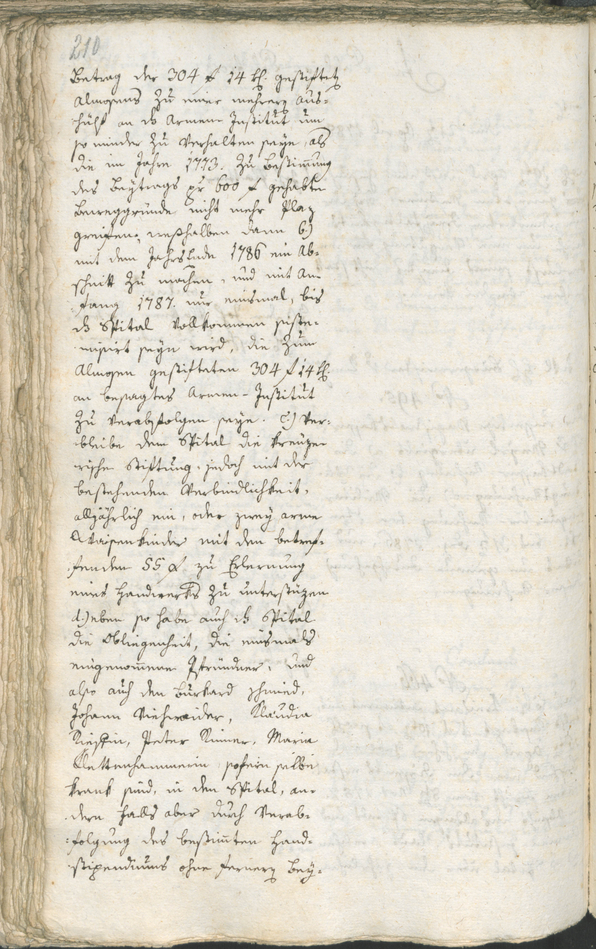 210
Betrag der 304 f 14 kr. gestifteten
Almosens zu einer mehrern Aus-
hülf an das Armen Institut um
so minder zu verhalten seye, als
die im Jahre 1773. zu Bestimmung
des Beytrags pr 600 f gehabte
Beweggründe nicht mehr Plaz
greifen, weßhalben dann b.)
mit dem Jahrs Ende 1786 ein Ab-
schnitt zu machen, und mit An-
fang 1787. nur einsmal, bis
das Spital vollkommen
seyn wird, die zum
Almosen gestifteten 304 f 14 kr.
an besagtes Armen-Institut
zu verabfolgen seye. c.) Ver-
bleibe dem Spital die Kreuze-
rische Stiftung, jedoch mit der
bestehenden Verbindlichkeit,
alljährlich ein, oder zwey arme
Waisenkinder mit den betref-
fenden 55 f. zu Erlernung
eines Handwerks zu unterstüzen
d.) eben so habe auch das Spital
die Obliegenheit, die einsmals
eingenommene Pfründner, und
also auch den Burkard Schmied,
Johann Viehweider, Klaudia
Peter Maria
sofern selbe
krank sind, in dem Spital, an-
dern Falls aber durch Verab-
folgung des bestimmten Hand-
stipendiums ohne fernern Bey-